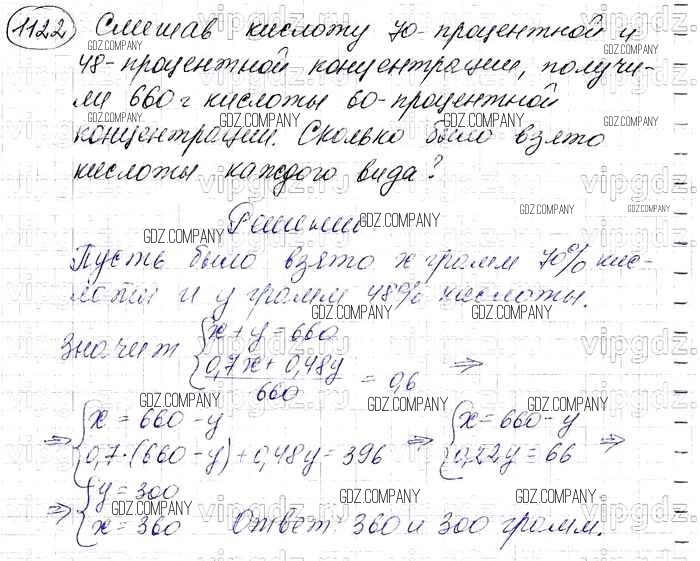 1122 Смешав кислоту 70-процентной и
48-процентной концентрации, получи-
ли 660 г кислоты 60-процентной
концентрации. Сколько было взято
кислоты каждого вида?
Решение
Пусть было взято x грамм 70% кис-
лоты и y грамм 48% кислоты.
Значит { x + y = 660
(0,7x + 0,48y) / 660 = 0,6 ⇒
⇒ { x = 660 - y
0,7·(660 - y) + 0,48y = 396 ⇒ { x = 660 - y
0,22y = 66 ⇒
⇒ { y = 300
x = 360 Ответ: 360 и 300 грамм.
GDZ.COMPANY
vipgdz.ru